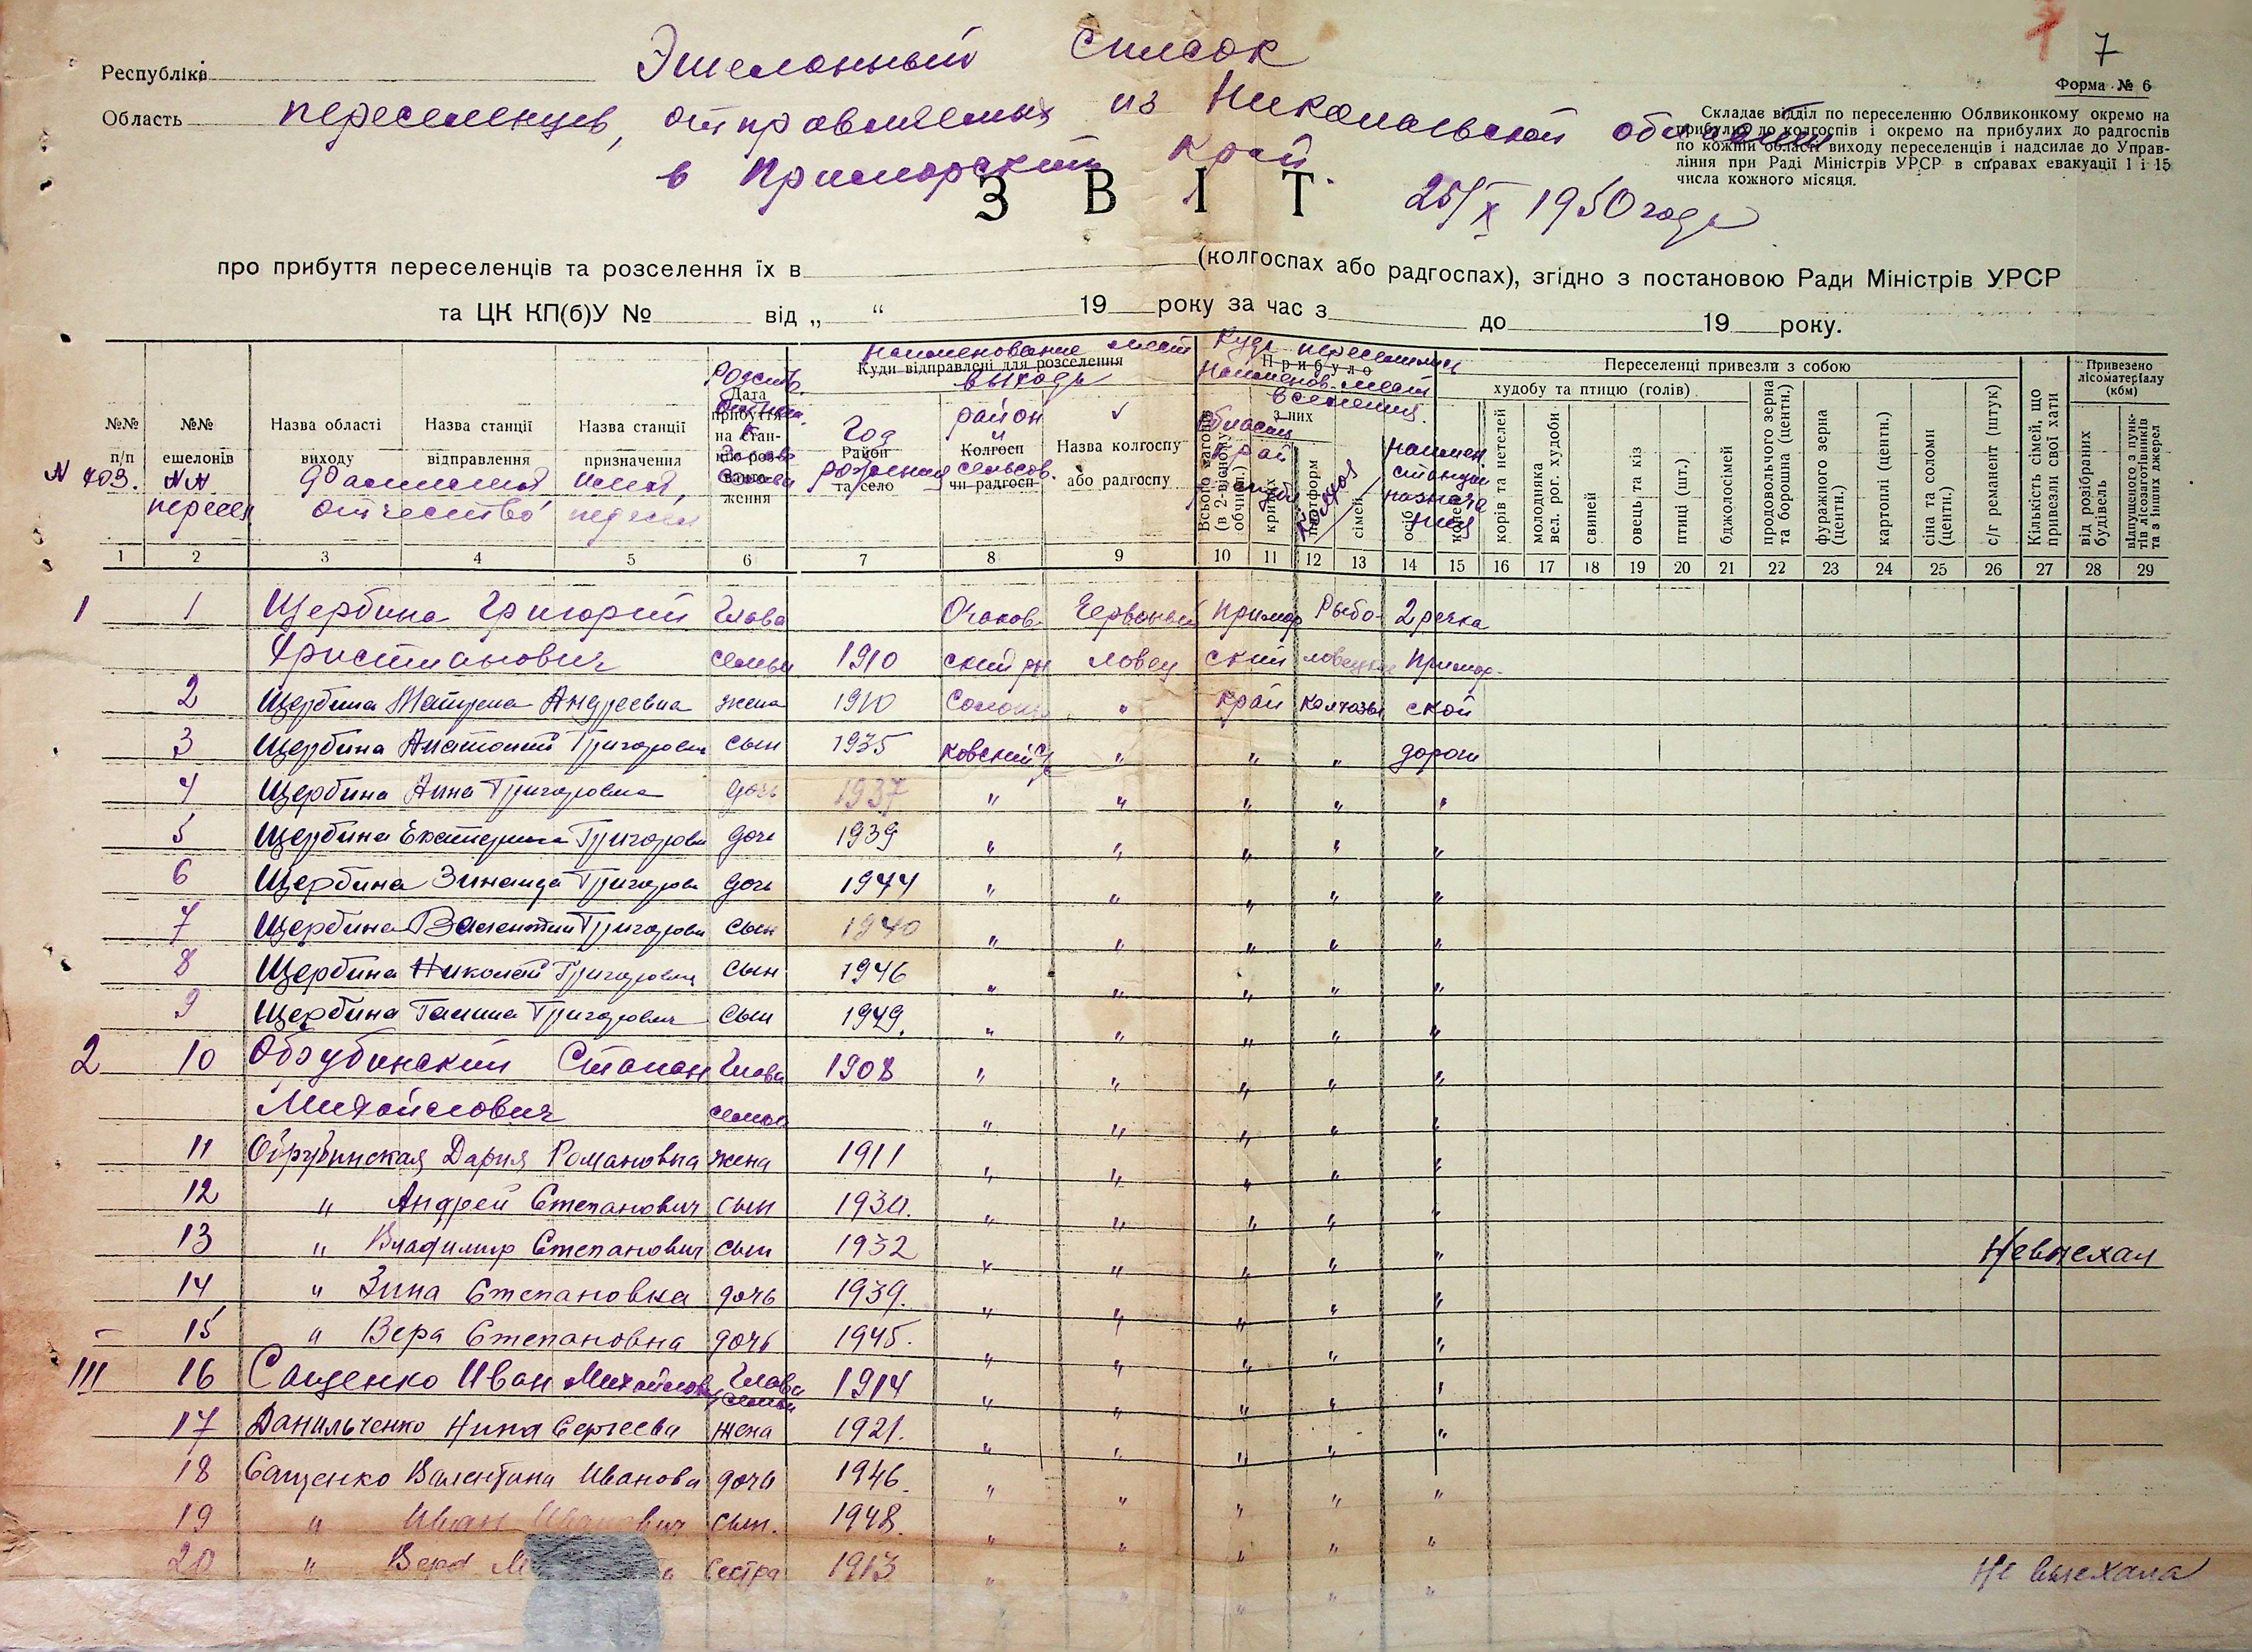 Эшелонный список
7
Республіка
Форма № 6
Область переселенцев, отправляемых из Николаевской области
в Приморский Край.
Складає відділ по переселенню Облвиконкому окремо на
прибулих до колгоспів і окремо на прибулих до радгоспів
по кожній області виходу переселенців і надсилає до Управ-
ління при Раді Міністрів УРСР в справах евакуації 1 і 15
числа кожного місяця.
ЗВІТ
25/X 1950 года
про прибуття переселенців та розселення їх в (колгоспах або радгоспах), згідно з постановою Ради Міністрів УРСР
та ЦК КП(б)У № від „ “ 19 року за час з до 19 року.
№№ п/п
N 403.
№№ ешелонів
NN пересел
Назва області виходу
Назва станції відправлення
Назва станції призначення
Фамилия имя,
отчество
Дата прибуття на стан-цію роз-ванта-ження
Куди відправлені для розселення
наименование мест
выхода
Район та село
Год рождения
Колгосп чи радгосп
район и сельсов.
Назва колгоспу або радгоспу
Куда переселились
Прибуло
Наименов. мест
вселения
Всього вагонів (в 2-вісному обчисл.)
з них
критих
платформ
сімей
осіб
Край
Колхоз
наимен. станции назначения
Переселенці привезли з собою
худобу та птицю (голів)
коней
корів та нетелей
молодника вел. рог. худоби
свиней
овець та кіз
птиці (шт.)
бджолосімей
продовольчого зерна та борошна (центн.)
фуражного зерна (центн.)
картоплі (центн.)
сіна та соломи (центн.)
с/г реманент (штук)
Кількість сімей, що привезли свої хати
Привезено лісоматеріалу (кбм)
від розібраних будівель
відпущеного з пунк-тів лісозаготівників та з інших джерел
1 2 3 4 5 6 7 8 9 10 11 12 13 14 15 16 17 18 19 20 21 22 23 24 25 26 27 28 29
1 1 Щербина Григорий Глава Очаков- Червоный Примор Рыбо- 2 речка
Христианович семьи 1910 ский рн ловец ский ловецкие Примор-
2 Щербина Матрена Андреевна жена 1910 „ край колхозы ской
3 Щербина Анатолий Григорович сын 1935 ковский с/с „ „ „ дороги
4 Щербина Анна Григоровна дочь 1937 „ „ „ „ „
5 Щербина Екатерина Григоровн дочь 1939 „ „ „ „ „
6 Щербина Зинаида Григоровн дочь 1944 „ „ „ „ „
7 Щербина Валентин Григорови сын 1940 „ „ „ „ „
8 Щербина Николай Григорович сын 1946 „ „ „ „ „
9 Щербина Галина Григорович сын 1949. „ „ „ „ „
2 10 Обрубинский Степан Глава 1908 „ „ „ „ „
Михайлович семьи „ „ „ „ „
11 Обрубинская Дария Романовна жена 1911 „ „ „ „ „
12 „ Андрей Степанович сын 1930. „ „ „ „ „
13 „ Владимир Степанович сын 1932 „ „ „ „ „ Не выехал
14 „ Зина Степановна дочь 1939. „ „ „ „ „
15 „ Вера Степановна дочь 1945. „ „ „ „ „
III 16 Сащенко Иван Михайлович Глава семьи 1914 „ „ „ „ „
17 Данильченко Нина Сергеевн жена 1921. „ „ „ „ „
18 Сащенко Валентина Иванова дочь 1946. „ „ „ „ „
19 „ Иван Иванович сын. 1948. „ „ „ „ „
20 „ Вера сестра 1913 „ „ „ „ „ Не выехала